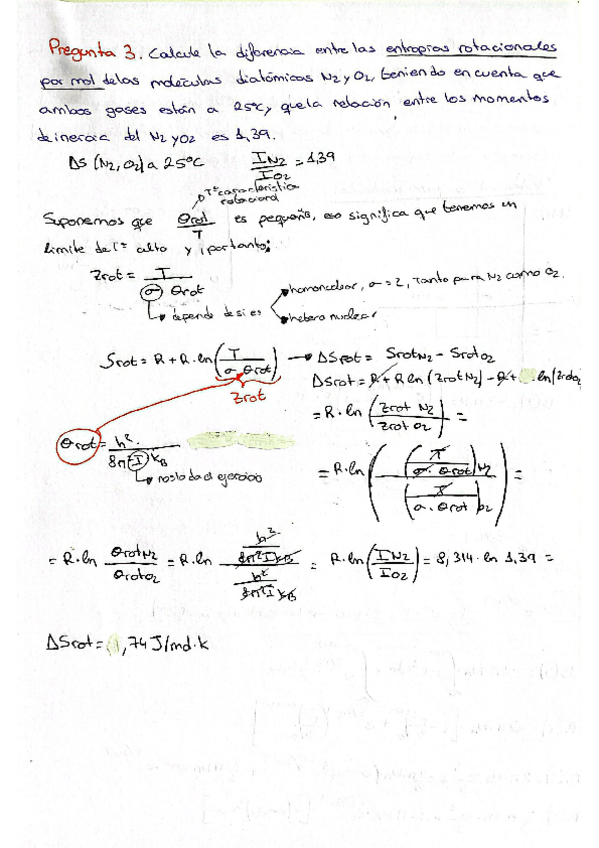 Pregunta 3. Calcule la diferencia entre las entropias rotacionales
por mol de las moléculas diatómicas N2 y O2, teniendo en cuenta que
ambos gases están a 25ºC, y que la relación entre los momentos
de inercia del N2 y O2 es 1,39.
ΔS (N2, O2) a 25ºC    I N2 / I O2 = 1,39
Tª característica rotacional
Suponemos que θrot / T es pequeño, eso significa que tenemos un
límite de Tª alto y, portanto;
Zrot = T / (σ θrot)
homonuclear, σ = 2, tanto para N2 como O2.
depende de si es
heteronuclear
Srot = R + R·ln (T / (σ·θrot)) → ΔSrot = SrotN2 - SrotO2
ΔSrot = R + R ln (Zrot N2) - R + ln(Zrot O2)
Zrot
= R·ln (Zrot N2 / Zrot O2) =
θrot = h² / (8π² I kB)
nos lo da el ejercicio
= R·ln ((T / (σ·θrot))N2 / (T / (σ·θrot))O2) =
= R·ln θrotN2 / θrotO2 = R·ln (h² / 8π²IkB) / (h² / 8π²IkB) = R·ln (I N2 / I O2) = 8,314·ln 1,39 =
ΔSrot = ,74 J/mol·K